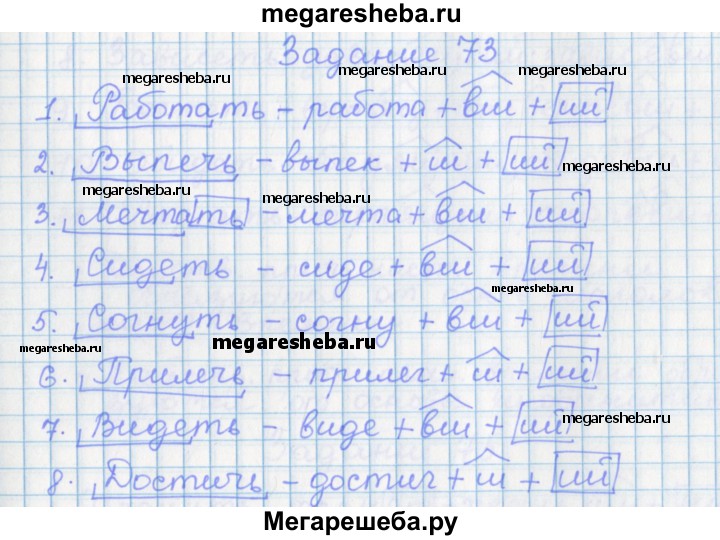 megaresheba.ru
Задание 73
megaresheba.ru
megaresheba.ru
megaresheba.ru
1. Работать – работа + вш + ий
2. Выпечь – выпек + ш + ий
megaresheba.ru
megaresheba.ru
3. Мечтать – мечта + вш + ий
4. Сидеть – сиде + вш + ий
megaresheba.ru
5. Согнуть – согну + вш + ий
megaresheba.ru
megaresheba.ru
6. Прилечь – прилег + ш + ий
7. Видеть – виде + вш + ий
megaresheba.ru
8. Достичь – достиг + ш + ий
Мегарешеба.ру